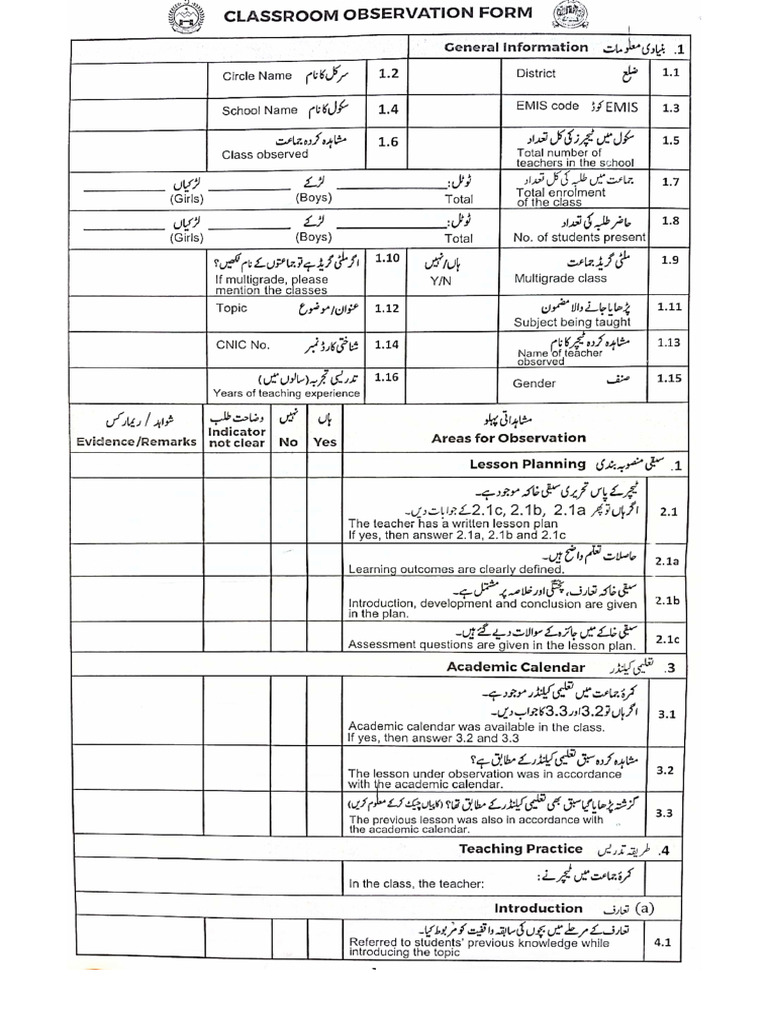 CLASSROOM OBSERVATION FORM
General Information بنیادی معلومات .1
Circle Name سرکل کا نام 1.2 District ضلع 1.1
School Name سکول کا نام 1.4 EMIS code کوڈ EMIS 1.3
مشاہدہ کردہ جماعت 1.6 سکول میں ٹیچرز کی کل تعداد 1.5
Class observed Total number of
teachers in the school
لڑکیاں لڑکے ٹوٹل: جماعت میں طلبہ کی کل تعداد 1.7
(Girls) (Boys) Total Total enrolment
of the class
لڑکیاں لڑکے ٹوٹل: حاضر طلبہ کی تعداد 1.8
(Girls) (Boys) Total No. of students present
اگر ملٹی گریڈ ہے تو جماعتوں کے نام لکھیں؟ 1.10 ہاں/نہیں ملٹی گریڈ جماعت 1.9
If multigrade, please Y/N Multigrade class
mention the classes
Topic عنوان/موضوع 1.12 پڑھایا جانے والا مضمون 1.11
Subject being taught
CNIC No. شناختی کارڈ نمبر 1.14 مشاہدہ کردہ ٹیچر کا نام 1.13
Name of teacher
observed
تدریسی تجربہ (سالوں میں) 1.16 Gender صنف 1.15
Years of teaching experience
شواہد / ریمارکس وضاحت طلب نہیں ہاں مشاہداتی پہلو
Evidence/Remarks Indicator not clear No Yes Areas for Observation
Lesson Planning سبقی منصوبہ بندی .1
ٹیچر کے پاس تحریری سبقی خاکہ موجود ہے۔ 2.1
اگر ہاں تو پھر 2.1a ,2.1b ,2.1c کے جوابات دیں۔
The teacher has a written lesson plan
If yes, then answer 2.1a, 2.1b and 2.1c
حاصلات تعلم واضح ہیں۔ 2.1a
Learning outcomes are clearly defined.
سبقی خاکہ تعارف، پختگی اور خلاصہ پر مشتمل ہے۔ 2.1b
Introduction, development and conclusion are given
in the plan.
سبقی خاکے میں جائزہ کے سوالات دیے گئے ہیں۔ 2.1c
Assessment questions are given in the lesson plan.
Academic Calendar تعلیمی کیلنڈر .3
کمرۂ جماعت میں تعلیمی کیلنڈر موجود ہے۔ 3.1
اگر ہاں تو 3.2 اور 3.3 کا جواب دیں۔
Academic calendar was available in the class.
If yes, then answer 3.2 and 3.3
مشاہدہ کردہ سبق تعلیمی کیلنڈر کے مطابق ہے؟ 3.2
The lesson under observation was in accordance
with the academic calendar.
گزشتہ پڑھایا گیا سبق بھی تعلیمی کیلنڈر کے مطابق تھا؟ (کاپیاں چیک کر کے معلوم کریں) 3.3
The previous lesson was also in accordance with
the academic calendar.
Teaching Practice طریقہ تدریس .4
کمرۂ جماعت میں ٹیچر نے:
In the class, the teacher:
Introduction تعارف (a)
تعارف کے مرحلے میں بچوں کی سابقہ واقفیت کو مربوط کیا۔ 4.1
Referred to students' previous knowledge while
introducing the topic